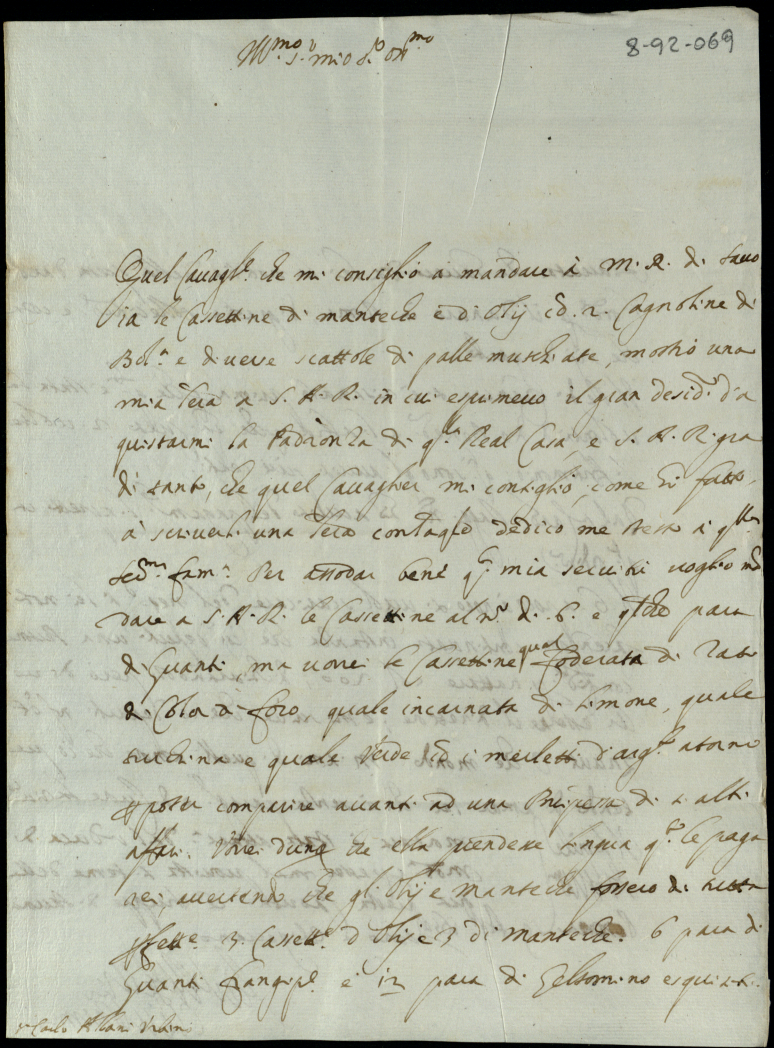 8-92-069
Ill.mo S.r mio S.r Oss.mo
Quel Cavagl.r che mi consigliò a mandare à M. R. di Savo
ia le Cassettine di mantecche e d'Olij cō. 2. Cagnoline di
Bol.a e diverse scattole di palle muschiate, mostrò una
mia lra a S. A. R. in cui esprimevo il gran desid.o d'a
quistarmi la Padronza di q.ta Real Casa, e S. A. R. gra
dì tanto, che quel Cavaglier mi consigliò, come hò fatto,
à scriverli una lra con dedico me stesso à q.lla
Ser.ma fam.a Per assodar bene q.ta mia servitù voglio mā
dare a S. A. R. le Cassettine al n.o di. 6. e q.che para
di Guanti, ma vorrei le Cassettine qual foderata di Tabi
di Color di foco, quale incarnata di Limone, quale
turchina e quale Verde cō i merletti d'arg.to atorno
p poter comparire avanti ad una Prīpessa di alti
affari. Vorrei dunq che ella prendesse lingua q.to le paga
rei, avertendo che gli Olij e mantecche fossero di tutta
pfett.e 3. Cassett.e d'Olij e 3 di mantecche. 6 para di
Guanti Frangip.e e 12 para di Gelsomino esquisiti.
Carlo Albani Urbino